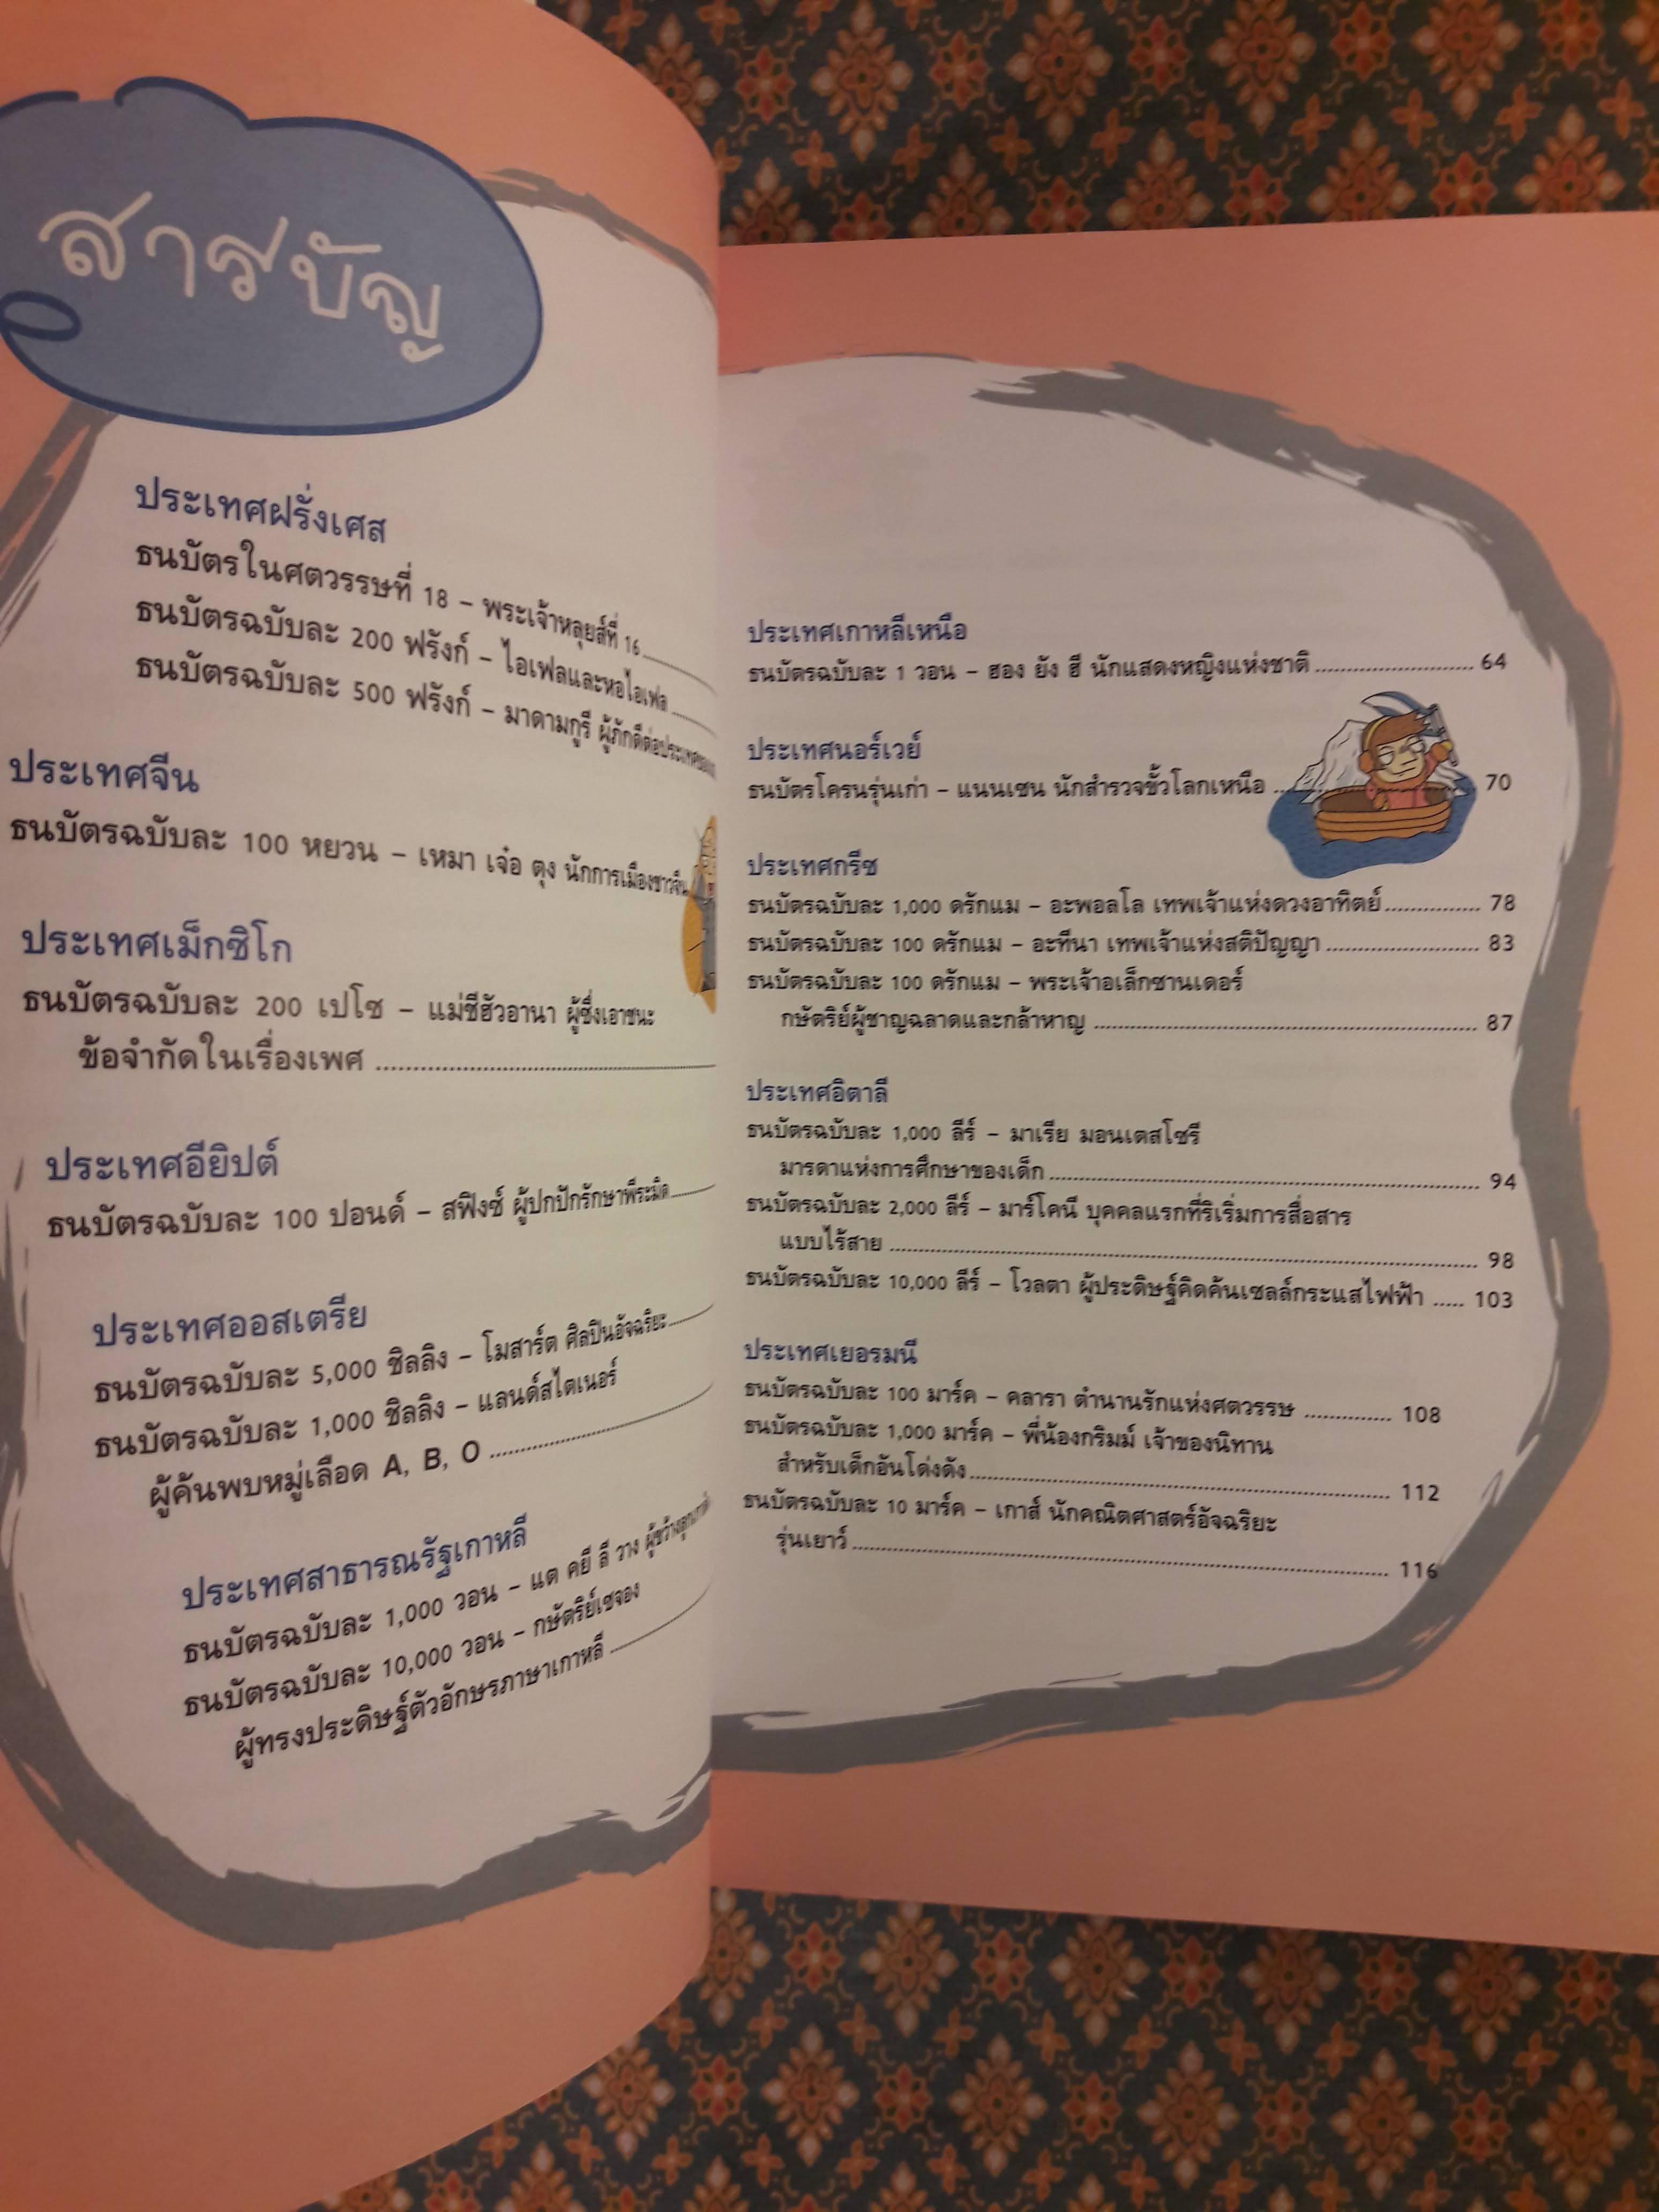 สารบัญ
ประเทศฝรั่งเศส
ธนบัตรในศตวรรษที่ 18 – พระเจ้าหลุยส์ที่ 16
ธนบัตรฉบับละ 200 ฟรังก์ – ไอเฟลและหอไอเฟล
ธนบัตรฉบับละ 500 ฟรังก์ – มาดามกูรี ผู้ภักดีต่อประเทศ
ประเทศจีน
ธนบัตรฉบับละ 100 หยวน – เหมา เจ๋อ ตุง นักการเมืองชาวจีน
ประเทศเม็กซิโก
ธนบัตรฉบับละ 200 เปโซ – แม่ชีฮัวอานา ผู้ซึ่งเอาชนะ
ข้อจำกัดในเรื่องเพศ
ประเทศอียิปต์
ธนบัตรฉบับละ 100 ปอนด์ – สฟิงซ์ ผู้ปกปักรักษาพีระมิด
ประเทศออสเตรีย
ธนบัตรฉบับละ 5,000 ชิลลิง – โมสาร์ต ศิลปินอัจฉริยะ
ธนบัตรฉบับละ 1,000 ชิลลิง – แลนด์สไตเนอร์
ผู้ค้นพบหมู่เลือด A, B, O
ประเทศสาธารณรัฐเกาหลี
ธนบัตรฉบับละ 1,000 วอน – แต คยี ลี วาง ผู้ขว้างลูก
ธนบัตรฉบับละ 10,000 วอน – กษัตริย์เซจอง
ผู้ทรงประดิษฐ์ตัวอักษรภาษาเกาหลี
ประเทศเกาหลีเหนือ
ธนบัตรฉบับละ 1 วอน – ฮอง ยัง ฮี นักแสดงหญิงแห่งชาติ 64
ประเทศนอร์เวย์
ธนบัตรโครนรุ่นเก่า – แนนเซน นักสำรวจขั้วโลกเหนือ 70
ประเทศกรีซ
ธนบัตรฉบับละ 1,000 ดรักแม – อะพอลโล เทพเจ้าแห่งดวงอาทิตย์ 78
ธนบัตรฉบับละ 100 ดรักแม – อะทีนา เทพเจ้าแห่งสติปัญญา 83
ธนบัตรฉบับละ 100 ดรักแม – พระเจ้าอเล็กซานเดอร์
กษัตริย์ผู้ชาญฉลาดและกล้าหาญ 87
ประเทศอิตาลี
ธนบัตรฉบับละ 1,000 ลีร์ – มาเรีย มอนเตสโซรี
มารดาแห่งการศึกษาของเด็ก 94
ธนบัตรฉบับละ 2,000 ลีร์ – มาร์โคนี บุคคลแรกที่ริเริ่มการสื่อสาร
แบบไร้สาย 98
ธนบัตรฉบับละ 10,000 ลีร์ – โวลตา ผู้ประดิษฐ์คิดค้นเซลล์กระแสไฟฟ้า 103
ประเทศเยอรมนี
ธนบัตรฉบับละ 100 มาร์ค – คลารา ตำนานรักแห่งศตวรรษ 108
ธนบัตรฉบับละ 1,000 มาร์ค – พี่น้องกริมม์ เจ้าของนิทาน
สำหรับเด็กอันโด่งดัง 112
ธนบัตรฉบับละ 10 มาร์ค – เกาส์ นักคณิตศาสตร์อัจฉริยะ
รุ่นเยาว์ 116